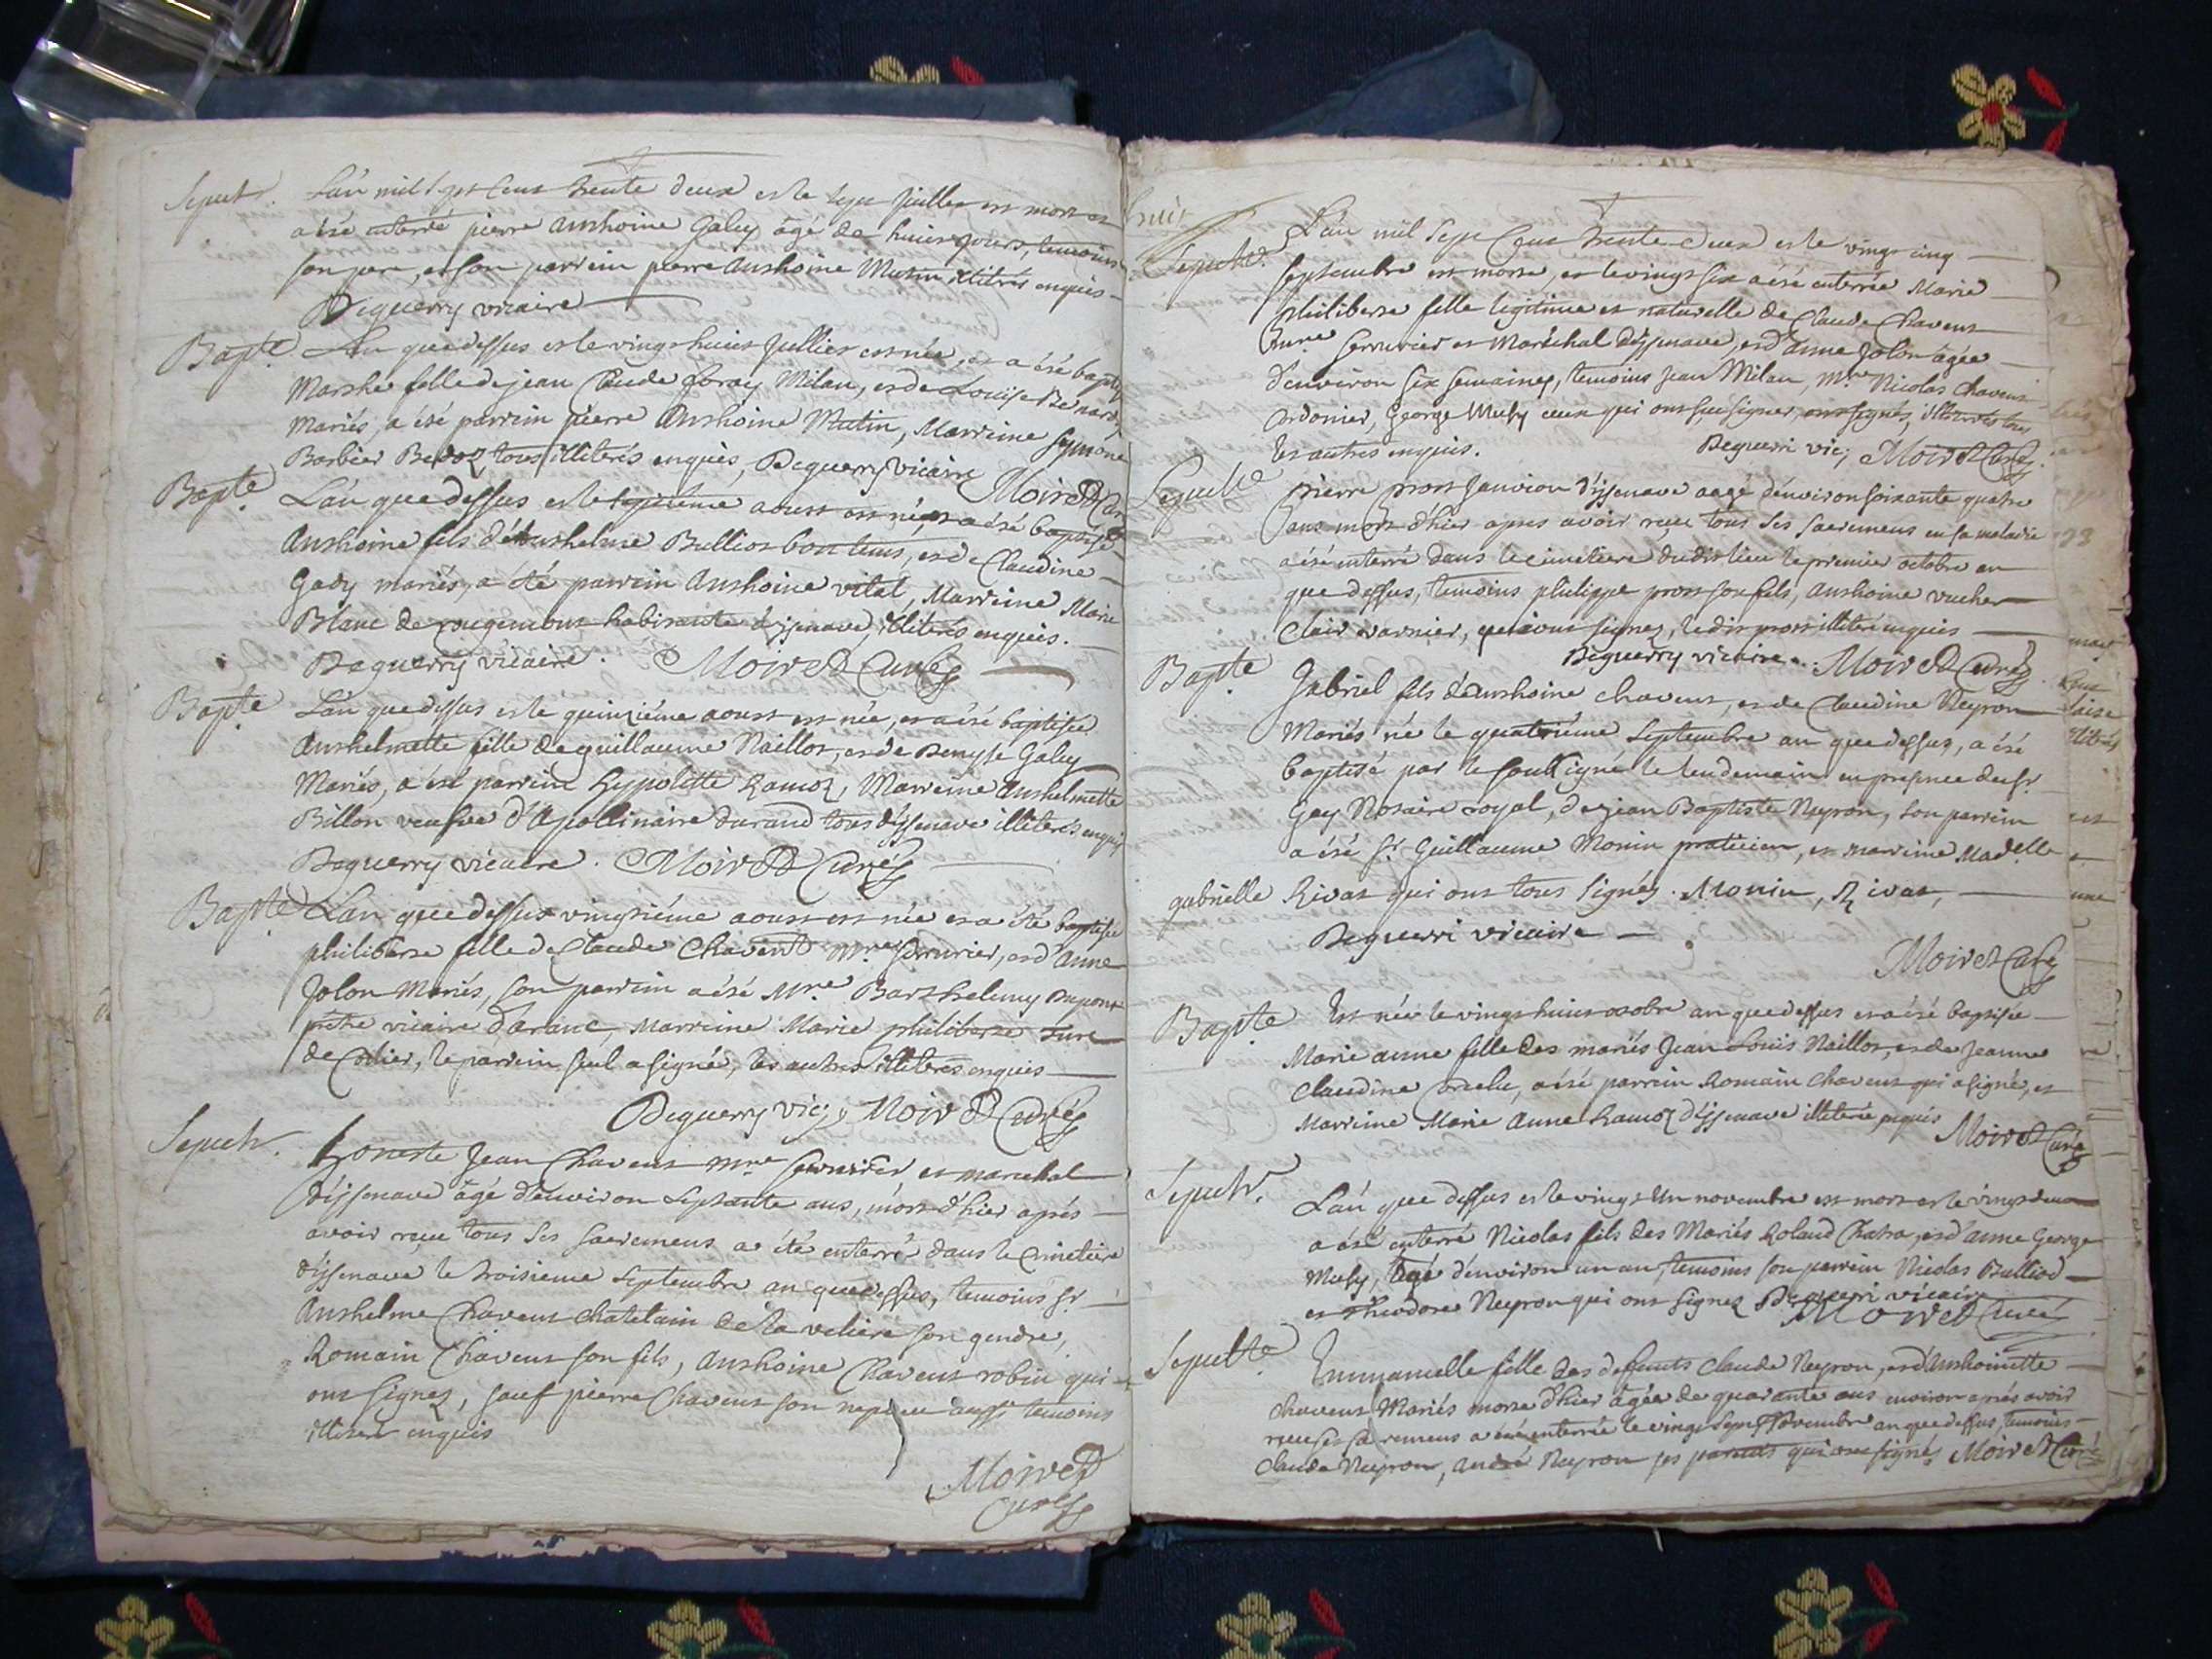 Sepultr. L'an mil sept cent trente deux et le sept juillet est mort et
a été enterré pierre Anthoine Galey âgé de huict jours, temoins
son pere, et son parrein pierre Anthoine Mutin illiterés enquis
Deguerry vicaire
Bapte L'an que dessus et le vingt huict juillet est née, et a été baptisée
Marthe fille de jean Claude Joray Milan, et de Louise Benard
Mariés, a été parrein pierre Anthoine Mutin, Marreine Symone
Barbier tous illiterés enquis, Deguerry Vicaire Moiret Curé
Bapte. L'an que dessus et le septieme aoust est né, et a été baptisé
Anthoine fils d'Anthelme Bulliot bontems, et de Claudine
Gady mariés, a été parrein Anthoine vital, Marreine Marie
Blanc de rougemont habitante d'issenave illiterés enquis.
Deguerry vicaire. Moiret Curé
Bapte L'an que dessus et le quinziéme aoust est née, et a été baptisée
Anthelmette fille de guillaume Naillot, et de Denyse Galey
Mariés, a été parrein hypolitte Ramoz, Marreine Anthelmette
Billon veufve d'Apollinaire durand tous d'issenave illiterés enquis
Deguerry vicaire. Moiret Curé
Bapte L'an que dessus vingtiéme aoust est née et a été baptisée
philiberte fille de Claude Chavent Mre serrurier, et d'anne
Jolon Mariés, son parrein a été Mre Barthelemy Dupont
prêtre vicaire d'aranc, Marreine Marie philiberte Jure
de Corlier, le parrein seul a signé, les autres illiterés enquis
Deguerry vic; Moiret Curé
Sepultr. honeste Jean Chavent mre serrurier et marechal
d'issenave âgé d'environ septante ans, mort d'hier aprés
avoir reçeu tous ses sacremens a été enterré dans le cimetiere
d'issenave le troisieme septembre an que dessus, temoins sr
Anthelme Chavent chatelain de la veliere son gendre,
Romain Chavent son fils, Anthoine Chavent robin qui
ont signez, sauf pierre Chavent son nepveu aussi temoins
illiteré enquis
Moiret
Curé
huit
Sepultr. L'an mil sept cent trente deux et le vingt cinq
septembre est morte, et le vingt six a été enterrée Marie
philiberte fille legitime et naturelle de Claude Chavent
serrurier et Maréchal d'issenave, et d'anne Jolon âgée
d'environ six semaines, temoins Jean Milan, Mre Nicolas Chavent
Cordonier, George Muby ceux qui ont sçeu signer, ont signés, illiterés tous
les autres enquis. Deguerri vic; Moiret Curé
Sepultre pierre prost Janvion d'issenave aagé d'environ soixante quatre
ans mort d'hier apres avoir reçeu tous ses sacremens en sa maladie
a été enterré dans le cimetiere dudit lieu le premier octobre an
que dessus, temoins philippe prost son fils, Anthoine vucher
Clair varnier, qui ont signez, ledit prost illiteré enquis
Deguerry vicaire. Moiret Curé
Bapte Gabriel fils d'Anthoine chavent, et de Claudine Neyron
Mariés né le quatriéme septembre an que dessus, a été
baptisé par le soussigné le lendemain en presence du sr
Gay Notaire royal, de jean Baptiste Neyron, son parrein
a été sr Guillaume Monin praticien, et marreine Madelle
gabrielle Rivat qui ont tous signés. Monin, Rivat,
Deguerri vicaire
Moiret Curé
Bapte Est née le vingt huict octobre an que dessus et a été baptisée
Marie anne fille des mariés Jean Louis Naillot, et de Jeanne
Claudine a été parrein Romain chavent qui a signé, et
Marreine Marie Anne Ramoz d'issenave illiterée enquis Moiret Curé
Sepultr. L'an que dessus et le vingt Un novembre est mort et le vingt deux
a été enterré Nicolas fils des Mariés Roland Chatra, et d'anne George
Muby, âgé d'environ un an, temoins son parrein Nicolas Bulliod
et theodore Neyron qui ont signez Deguerri vicaire
Moiret Curé
Sepultre Emmanuelle fille des deffunts claude Neyron, et d'Anthoinette
chavent Mariés morte d'hier âgée de quarante ans environ aprés avoir
receu ses sacremens a été enterrée le vingt sept Novembre an que dessus, temoins
Claude Neyron, André Neyron ses parents qui ont signés Moiret Curé